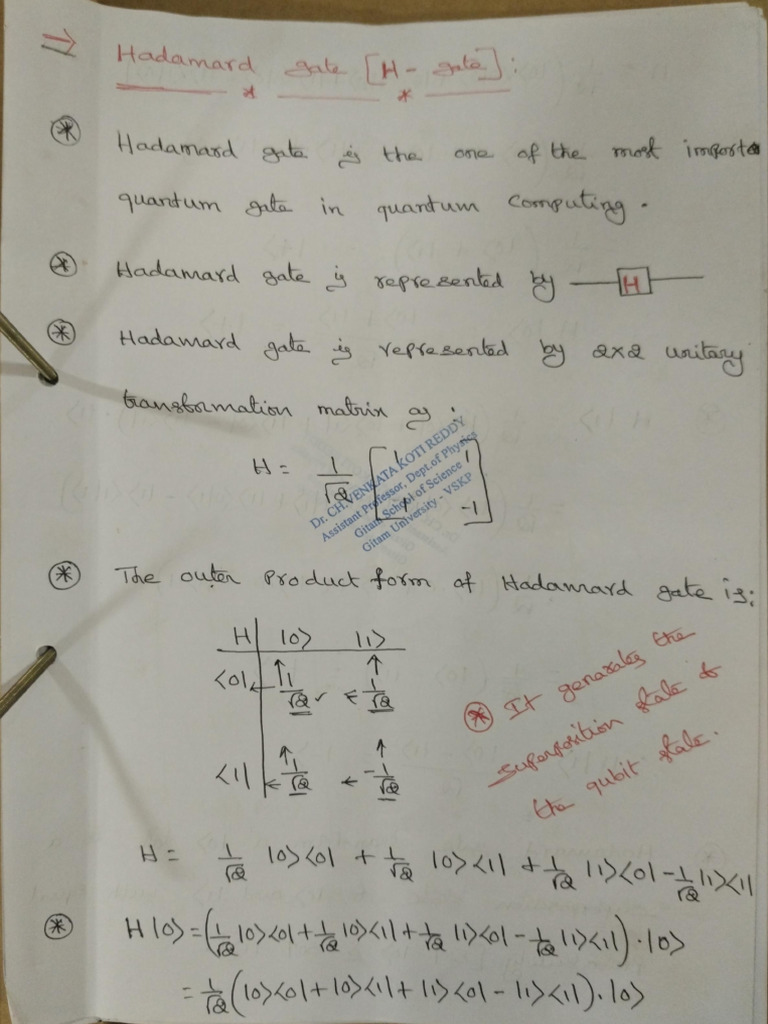 ⇒ Hadamard gate [H - gate]:
* Hadamard gate is the one of the most importa
quantum gate in quantum computing.
* Hadamard gate is represented by —[H]—
* Hadamard gate is represented by 2×2 unitary
transformation matrix as:
H = 1/√2 [1 1
1 -1]
Dr. CH.VENKATA KOTI REDDY
Assistant Professor, Dept.of Physics
Gitam School of Science
Gitam University - VSKP
* The outer product form of Hadamard gate is:
H |0> |1>
<0| 1/√2 1/√2
<1| 1/√2 -1/√2
* It genarates the
superposition state to
the qubit state.
H = 1/√2 |0><0| + 1/√2 |0><1| + 1/√2 |1><0| - 1/√2 |1><1|
* H|0> = (1/√2 |0><0| + 1/√2 |0><1| + 1/√2 |1><0| - 1/√2 |1><1|) · |0>
= 1/√2 (|0><0| + |0><1| + |1><0| - |1><1|) · |0>